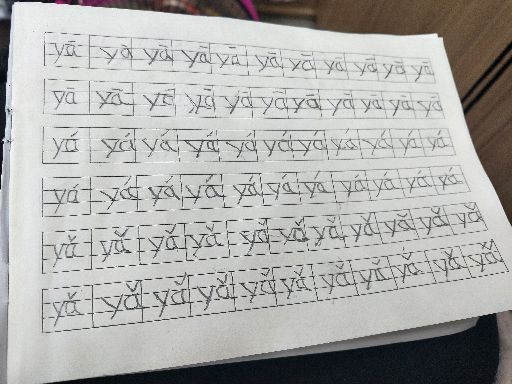 yā yā yā yā yā yā yā yā yā yā yā
yā yā yā yā yā yā yā yā yā yā yā
yá yá yá yá yá yá yá yá yá yá yá
yá yá yá yá yá yá yá yá yá yá yá
yǎ yǎ yǎ yǎ yǎ yǎ yǎ yǎ yǎ yǎ yǎ
yǎ yǎ yǎ yǎ yǎ yǎ yǎ yǎ yǎ yǎ yǎ